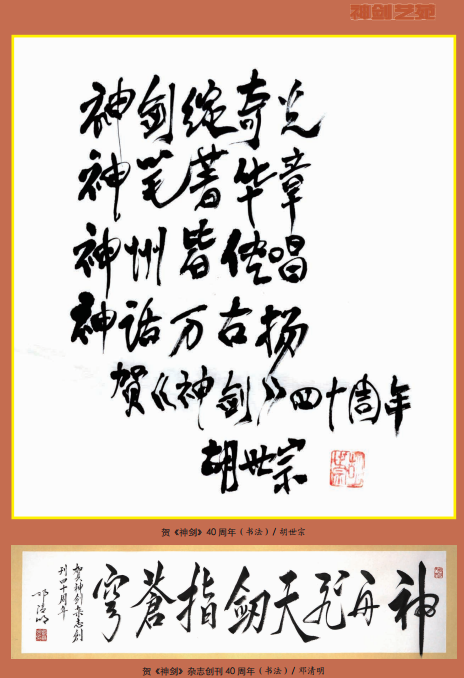 神剑艺苑
神剑绽奇光
神笔著华章
神州皆传唱
神话万古扬
贺《神剑》四十周年
胡世宗
贺《神剑》40周年（书法）/ 胡世宗
神舟飞天剑指苍穹
贺神剑杂志创
刊四十周年
邓清明
贺《神剑》杂志创刊40周年（书法）/ 邓清明